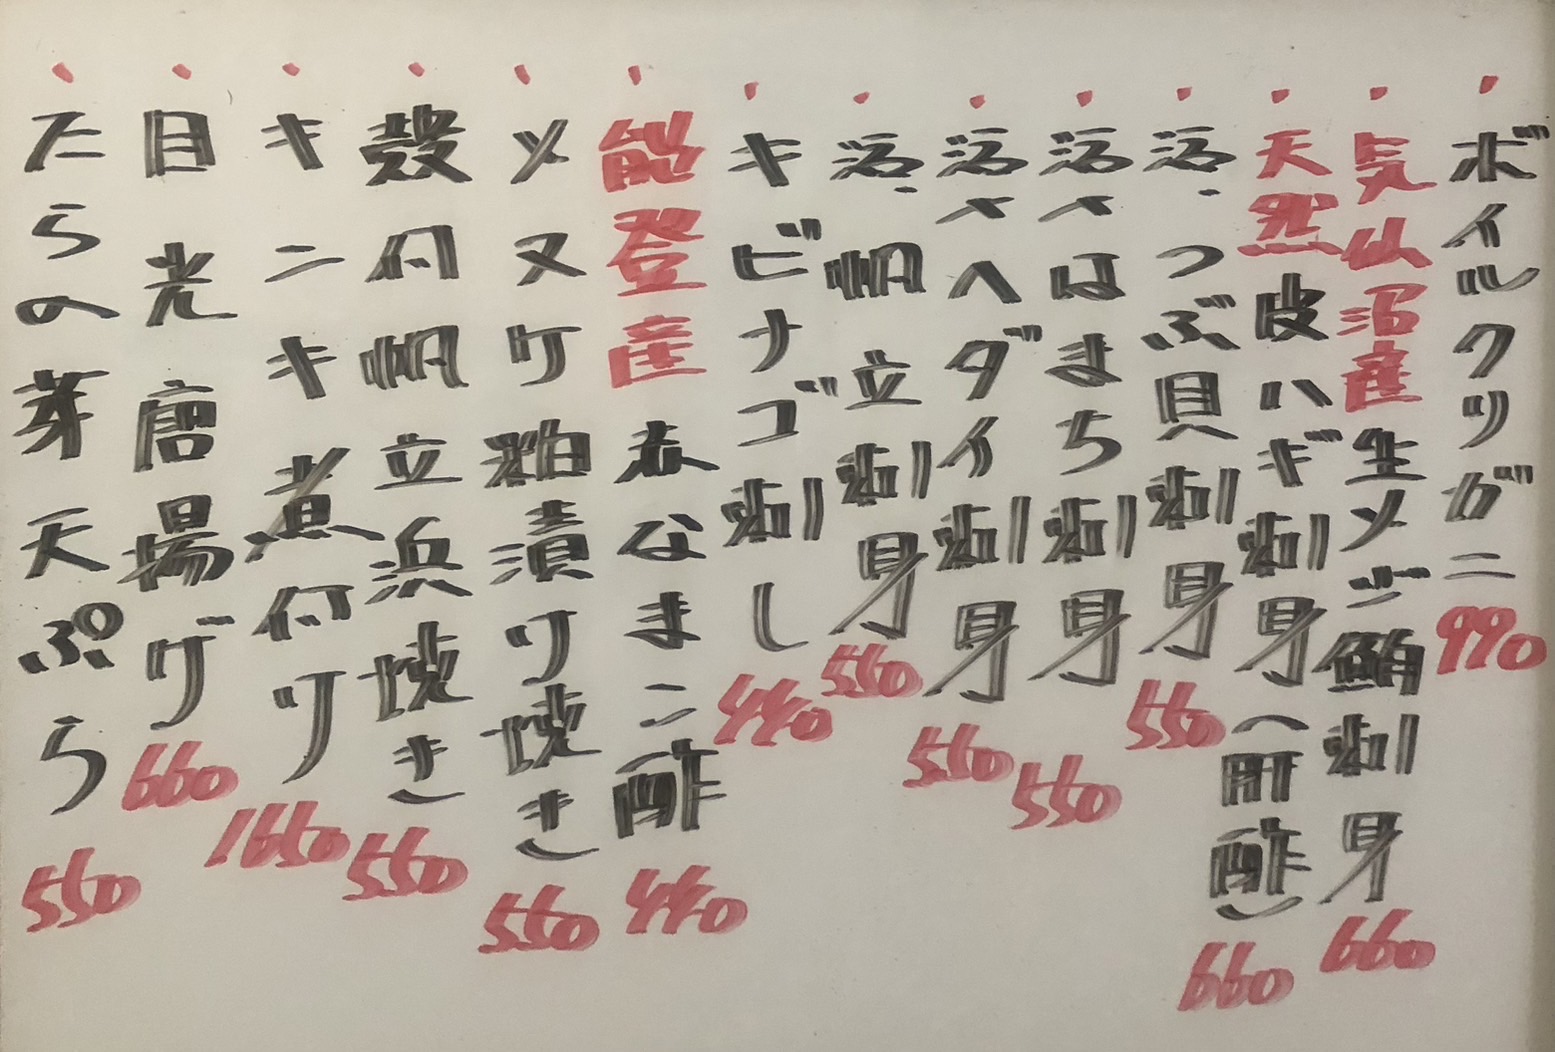 ・ボイルクリガニ 990
・気仙沼産生メジ鮪刺身 660
・天然皮ハギ刺身(肝酢) 660
・活、つぶ貝刺身 550
・活〆はまち刺身 550
・活〆ヘダイ刺身 550
・活、帆立刺身 550
・キビナゴ刺し 440
・能登産春なまこ酢 440
・メヌケ粕漬リ焼き 550
・殻付帆立浜焼き 550
・キンキ煮付リ 1650
・目光唐揚ゲ 660
・たらの芽天ぷら 550